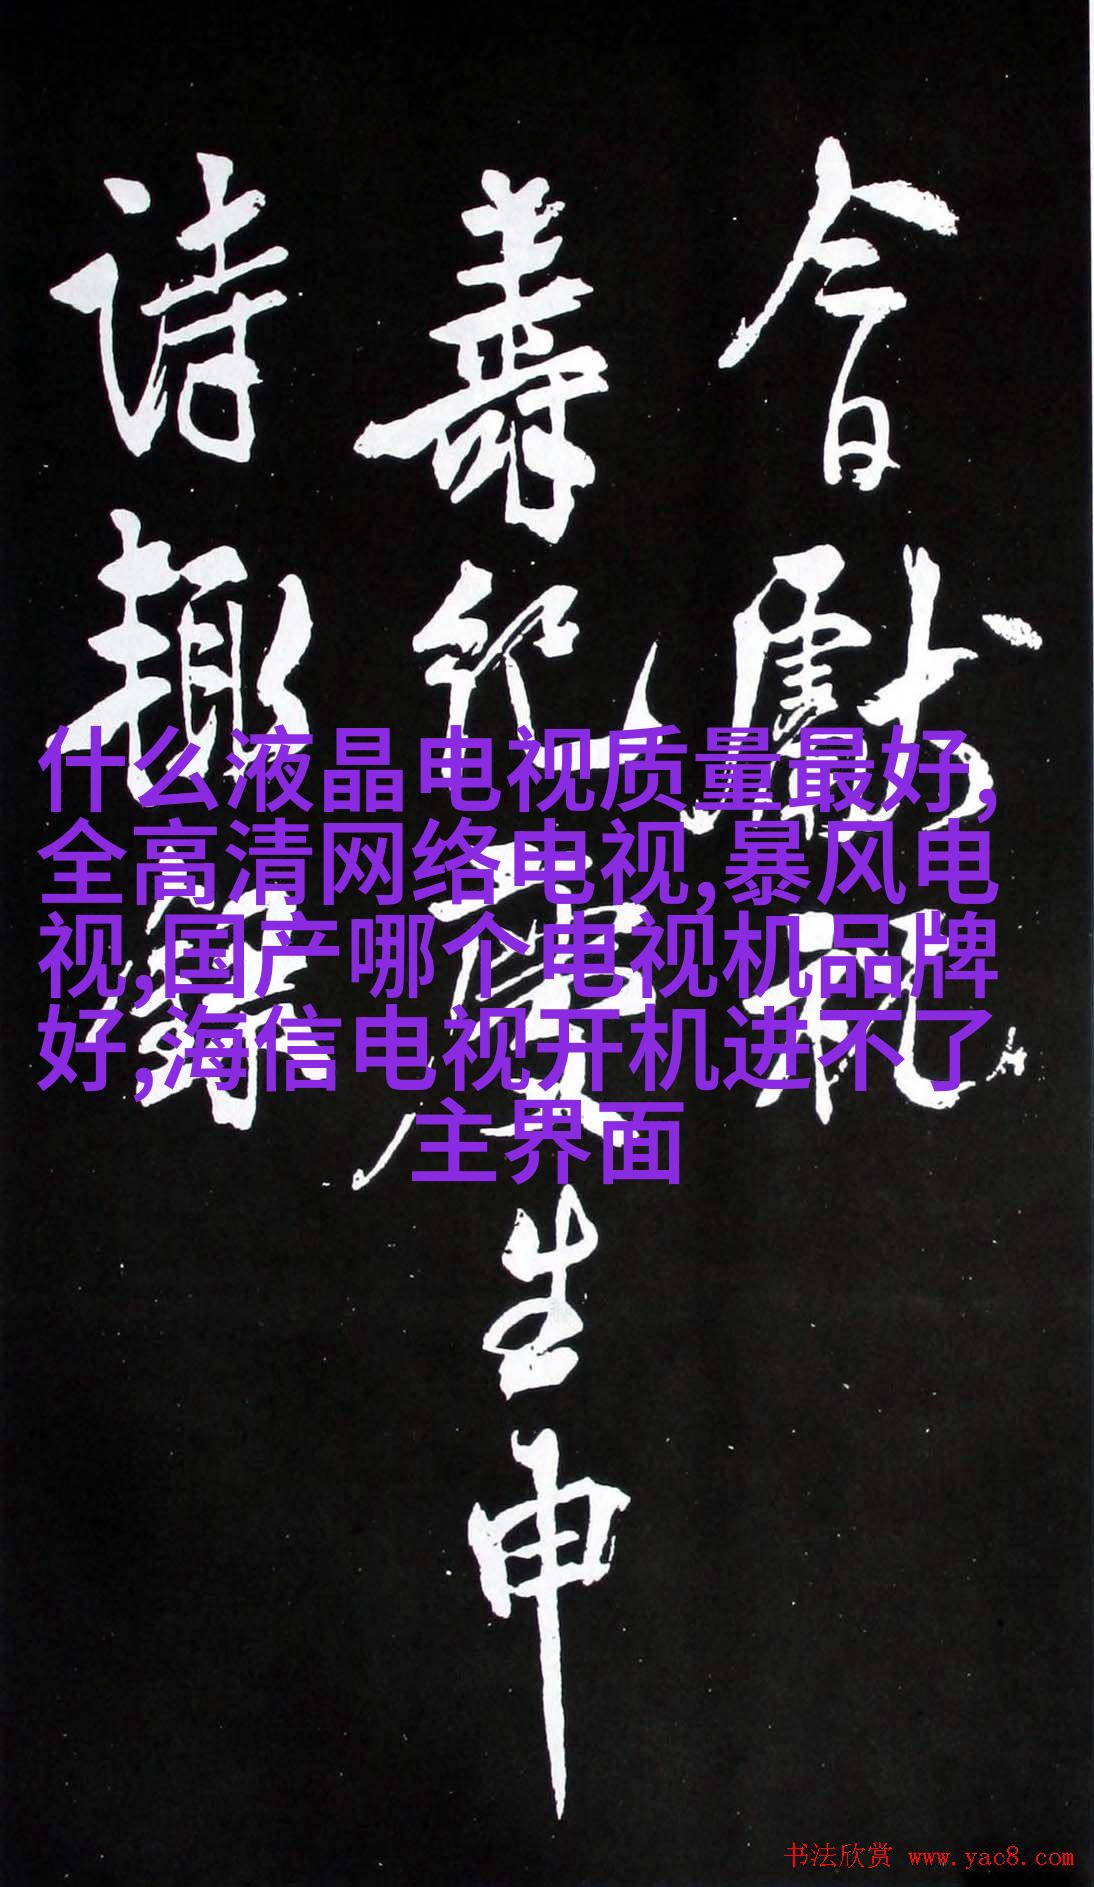 今日献祝
寿纪庆生申
诗趣
什么液晶电视质量最好,
全高清网络电视,暴风电
视,国产哪个电视机品牌
好,海信电视开机进不了
主界面
书法欣赏 www.yac8.com